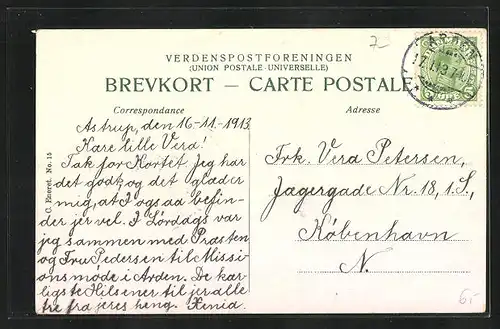 VERDENSPOSTFORENINGEN
(UNION POSTALE UNIVERSELLE)
BREVKORT — CARTE POSTALE
Correspondance
Adresse
Astrup, den 16-11-1913.
Kære lille Vera!
Tak for Kortet. Jeg har
det godt, og det glæder
mig, at I ogsaa befin-
der jer vel. I Lørdags var
jeg sammen med Præsten
og Fru Pedersen til Missi-
onsmøde i Arden. De kær-
ligste Hilsener til jer alle
tre fra jeres heng. Xenia.
Frk. Vera Petersen,
Jægergade Nr. 18, 1. S,
København
N.
Eneret. No. 15
6,-